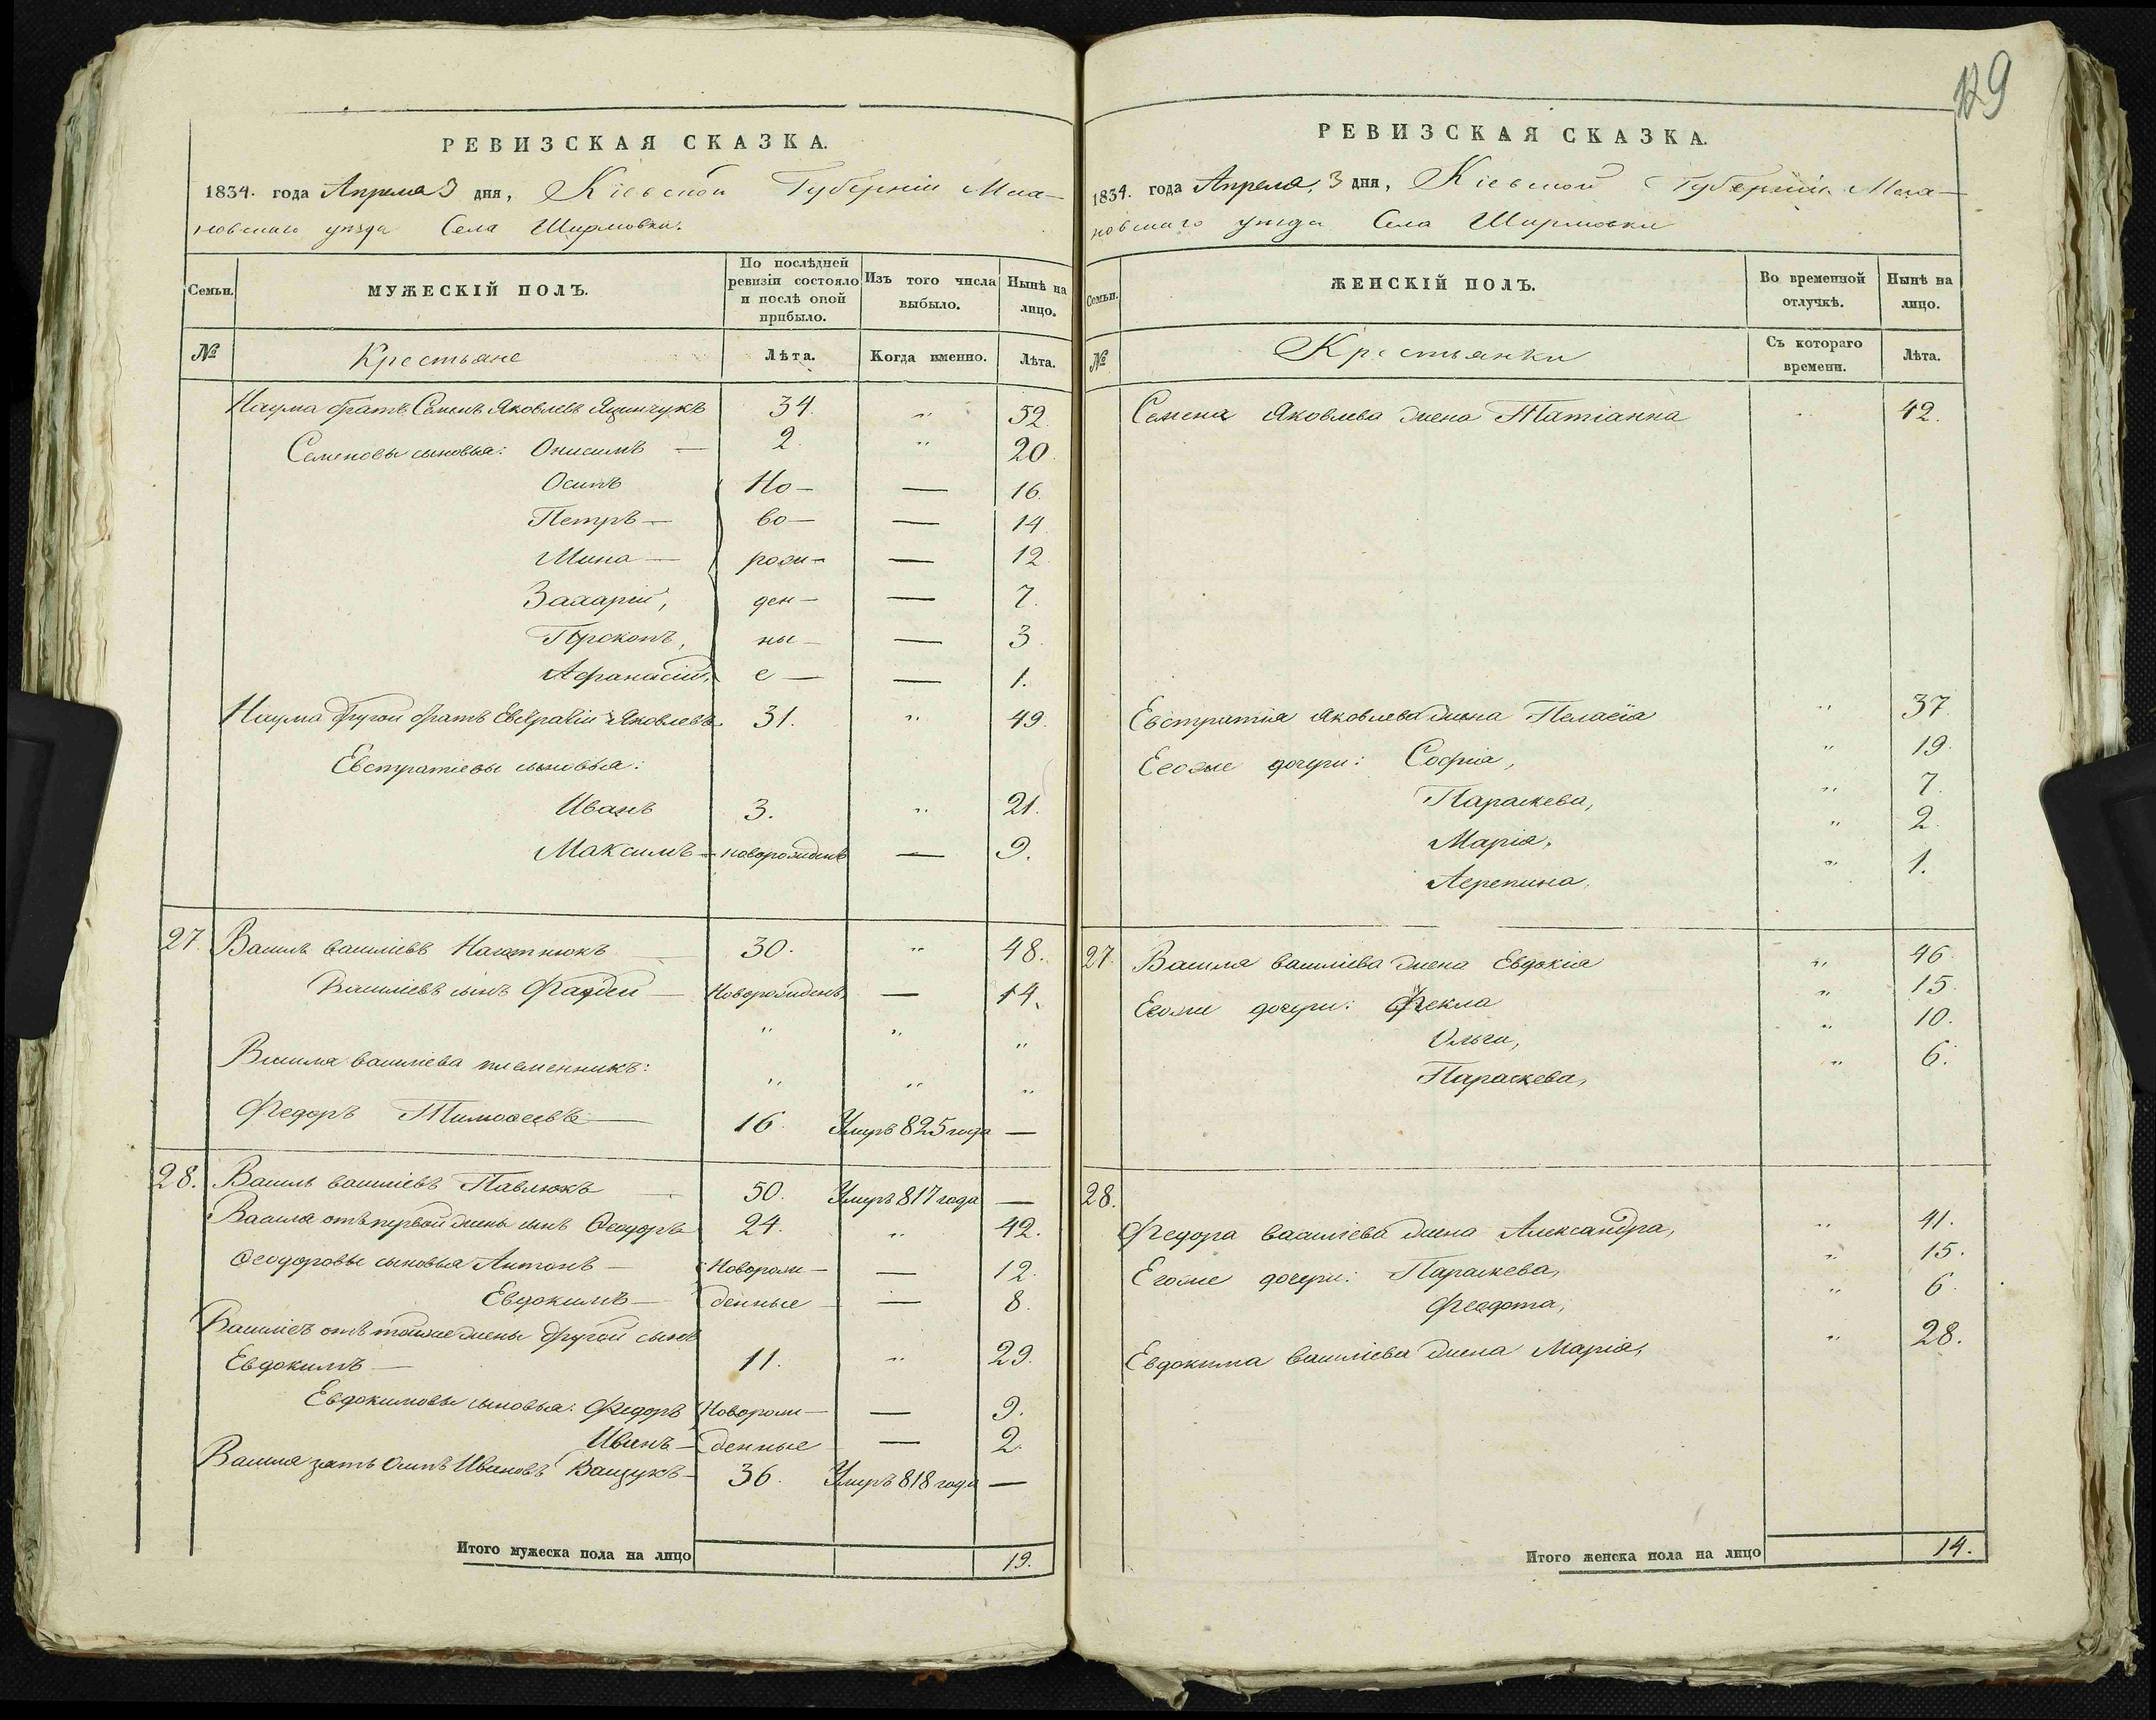 РЕВИЗСКАЯ СКАЗКА.
1834. года Апреля 3 дня, Кіевской Губерніи Маха-
новскаго уезда Села Ширмовки.
Семьи.
МУЖЕСКІЙ ПОЛЪ.
По послѣдней ревизіи состояло и послѣ оной прибыло.
Изъ того числа выбыло.
Нынѣ на лицо.
№ Крестьяне Лѣта. Когда именно. Лѣта.
Наума братъ Семенъ Яковлевъ Яцымчукъ 34. " 52.
Семеновы сыновья: Онисимъ — 2. " 20.
Осипъ Но- — 16.
Петръ — во- — 14
Мина — рож- — 12
Захарій, ден- — 7.
Прокопъ, ны- — 3
Афанасій, е — — 1.
Наума другой братъ Евстратій Яковлевъ 31. " 49.
Евстратіевы сыновья:
Иванъ 3. " 21.
Максимъ — новорожденъ — 9.
27. Василь Василіевъ — 30. " 48.
Василіевъ сынъ Фадей — Новорожденъ — 14.
" " "
Василя Василіева племенникъ:
" " "
Федоръ Тимофеевъ — 16. Умеръ 825 года —
28. Василь Василіевъ Павлюкъ — 50. Умеръ 817 года —
Василя отъ первой жены сынъ Ѳеодоръ 24. " 42.
Ѳеодоровы сыновья Антонъ — Новорож- — 12.
Евдокимъ — денные — 8.
Василіевъ отъ тойже жены другой сынъ
Евдокимъ — 11. " 29.
Евдокимовы сыновья: Федоръ Новорож- — 9.
Иванъ — денные — 2.
Василя зять Осипъ Ивановъ Ващукъ — 36. Умеръ 818 года —
Итого мужеска пола на лицо 19.
129
РЕВИЗСКАЯ СКАЗКА.
1834. года Апреля, 3 дня, Кіевской Губерніи Маха-
новскаго уезда Села Ширмовки
Семьи.
ЖЕНСКІЙ ПОЛЪ.
Во временной отлучкѣ.
Нынѣ на лицо.
№ Крестьянки Съ котораго времени. Лѣта.
Семена Яковлева жена Татіанна " 42.
Евстратія Яковлева жена Пелагія " 37
Егоже дочери: Софія, " 19.
Параскева, " 7.
Марія, " 2.
Агрепина, " 1.
27. Василя Василіева жена Евдокія " 46
Егоже дочери: Фекла " 15.
Ольга, " 10.
Параскева, " 6.
28.
Федора Василіева жена Александра, " 41.
Егоже дочери: Параскева, " 15.
Федота, " 6.
Евдокима Василіева жена Марія, " 28.
Итого женска пола на лицо 14.